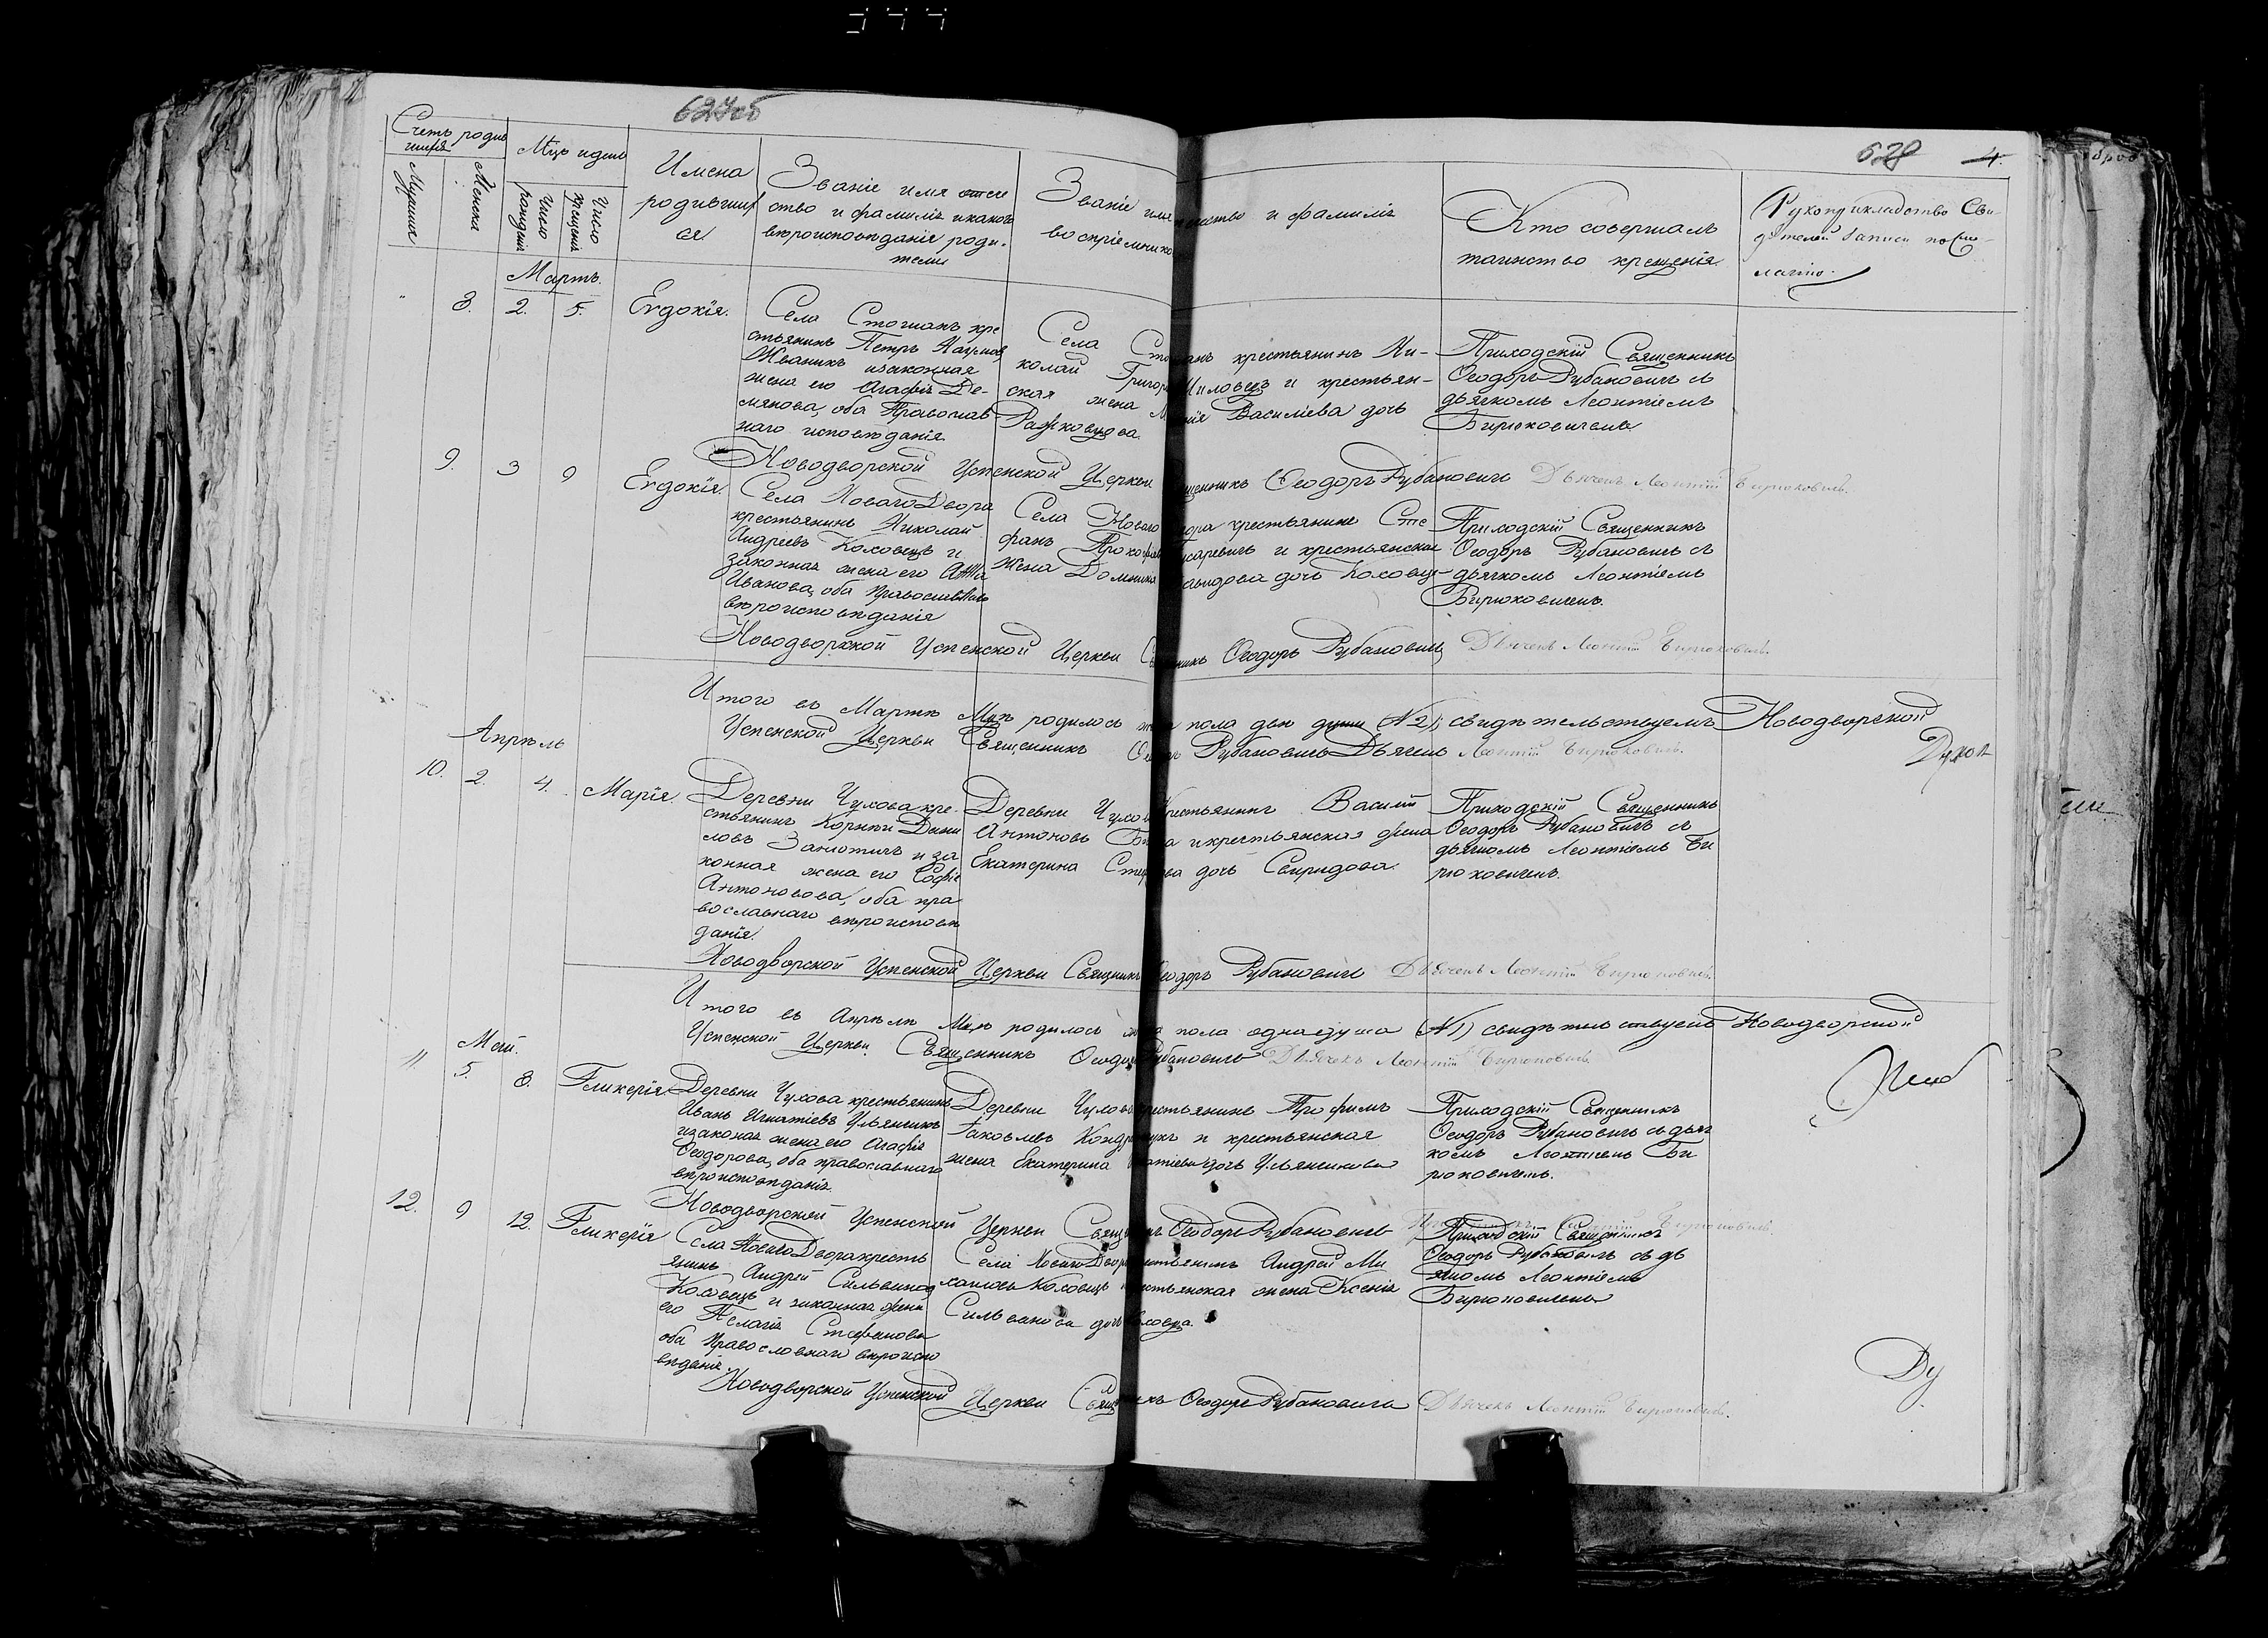 627об
628 4.
Счетъ родив
шихся
Мцъ и день
Имена
родивших
ся
Званіе имя отче
ство и фамилія и какого
вѣроисповѣданія роди-
тели
Званіе имя отчество и фамилія
воспріемнико
Кто совершалъ
таинство крещенія
Рукоприкладство Сви-
дѣтелей записи по же-
ланію.
Мужеска
Женска
Число
рожденія
Число
крещенія
Мартъ.
8. 2. 5. Евдокія.
Села Стогианъ кре
стьянинъ Петръ Наумов
Жваникъ и законная
жена его Агафія Де-
мянова, оба Православ
наго исповѣданія
Села крестьянинъ Ни-
колай Григор Миловецъ и крестьян-
ская жена Василіева дочь
Ражковцова
Приходскій Священникъ
Ѳеодоръ Рубановичъ съ
дьячкомъ Леонтіемъ
Бирюковичемъ
Новодворской Успенской Церкви Священникъ Ѳеодоръ Рубановичъ Дьячекъ Леонтій Бирюковичъ.
9. 3 9 Евдокія.
Села Новаго Двора
крестьянинъ Николай
Андреевъ Коховецъ и
законная жена его Анна
Иванова, оба православнаго
вѣроисповѣданія
Села Новаго Двора крестьянинъ Сте
фанъ Прокофіевъ Писаревичъ и крестьянская
жена Домника Давидова дочь Коховц-
Приходскій Священникъ
Ѳеодоръ Рубановичъ съ
дьячкомъ Леонтіемъ
Бирюковичемъ.
Новодворской Успенской Церкви Священникъ Ѳеодоръ Рубановичъ Дьячекъ Леонтій Бирюковичъ.
Итого въ Мартѣ Мцѣ родилось жен пола двѣ души (№2), свидѣтельствуемъ Новодворской
Успенской Церкви Священникъ Ѳеодоръ Рубановичъ Дьячекъ Леонтій Бирюковичъ.
Духов
Апрѣль
10. 2. 4. Марія.
Деревни Чухова кре-
стьянинъ Корнѣй Дани
ловъ Занютичъ и за
конная жена его Софія
Антонова, оба пра
вославнаго вѣроисповѣ
данія.
Деревни Чухова Крестьянинъ Василій
Антоновъ и крестьянская жена
Екатерина дочь Свиридова
Приходскій Священникъ
Ѳеодоръ Рубановичъ съ
дьячкомъ Леонтіемъ Би
рюковичемъ.
Новодворской Успенской Церкви Священникъ Ѳеодоръ Рубановичъ Дьячекъ Леонтій Бирюковичъ.
Итого въ Апрѣлѣ Мцѣ родилось жен пола одна душа (№1) свидѣтельствуемъ Новодворской
Успенской Церкви Священникъ Ѳеодоръ Рубановичъ Дьячекъ Леонтій Бирюковичъ.
Май.
11 5. 8. Гликерія
Деревни Чухова крестьянинъ
Иванъ Игнатіевъ Ульянчикъ
и законная жена его Агафія
Ѳеодорова, оба православнаго
вѣроисповѣданія.
Деревни Чухова крестьянинъ Трофимъ
Яковлевъ Кондратюкъ и крестьянская
жена Екатерина Игнатіева дочь Ульянчикова
Приходскій Священникъ
Ѳеодоръ Рубановичъ съ дьяч
комъ Леонтіемъ Би
рюковичемъ.
Новодворской Успенской Церкви Священникъ Ѳеодоръ Рубановичъ Бирюковичъ.
12. 9 12. Гликерія
Села Новаго Двора кресть
янинъ Андрей Сильвановъ
Коховецъ и законная жена
его Пелагія Стефанова
оба Православнаго вѣроиспо
вѣданія.
Села Новаго Двора крестьянинъ Андрей Ми
хайловъ Коховецъ и крестьянская жена Ксенія
Сильванова дочь Коховца.
Приходскій Священникъ
Ѳеодоръ Рубановичъ съ дь
ячкомъ Леонтіемъ
Бирюковичемъ
Новодворской Успенской Церкви Священникъ Ѳеодоръ Рубановичъ Дьячекъ Леонтій Бирюковичъ.
Ду